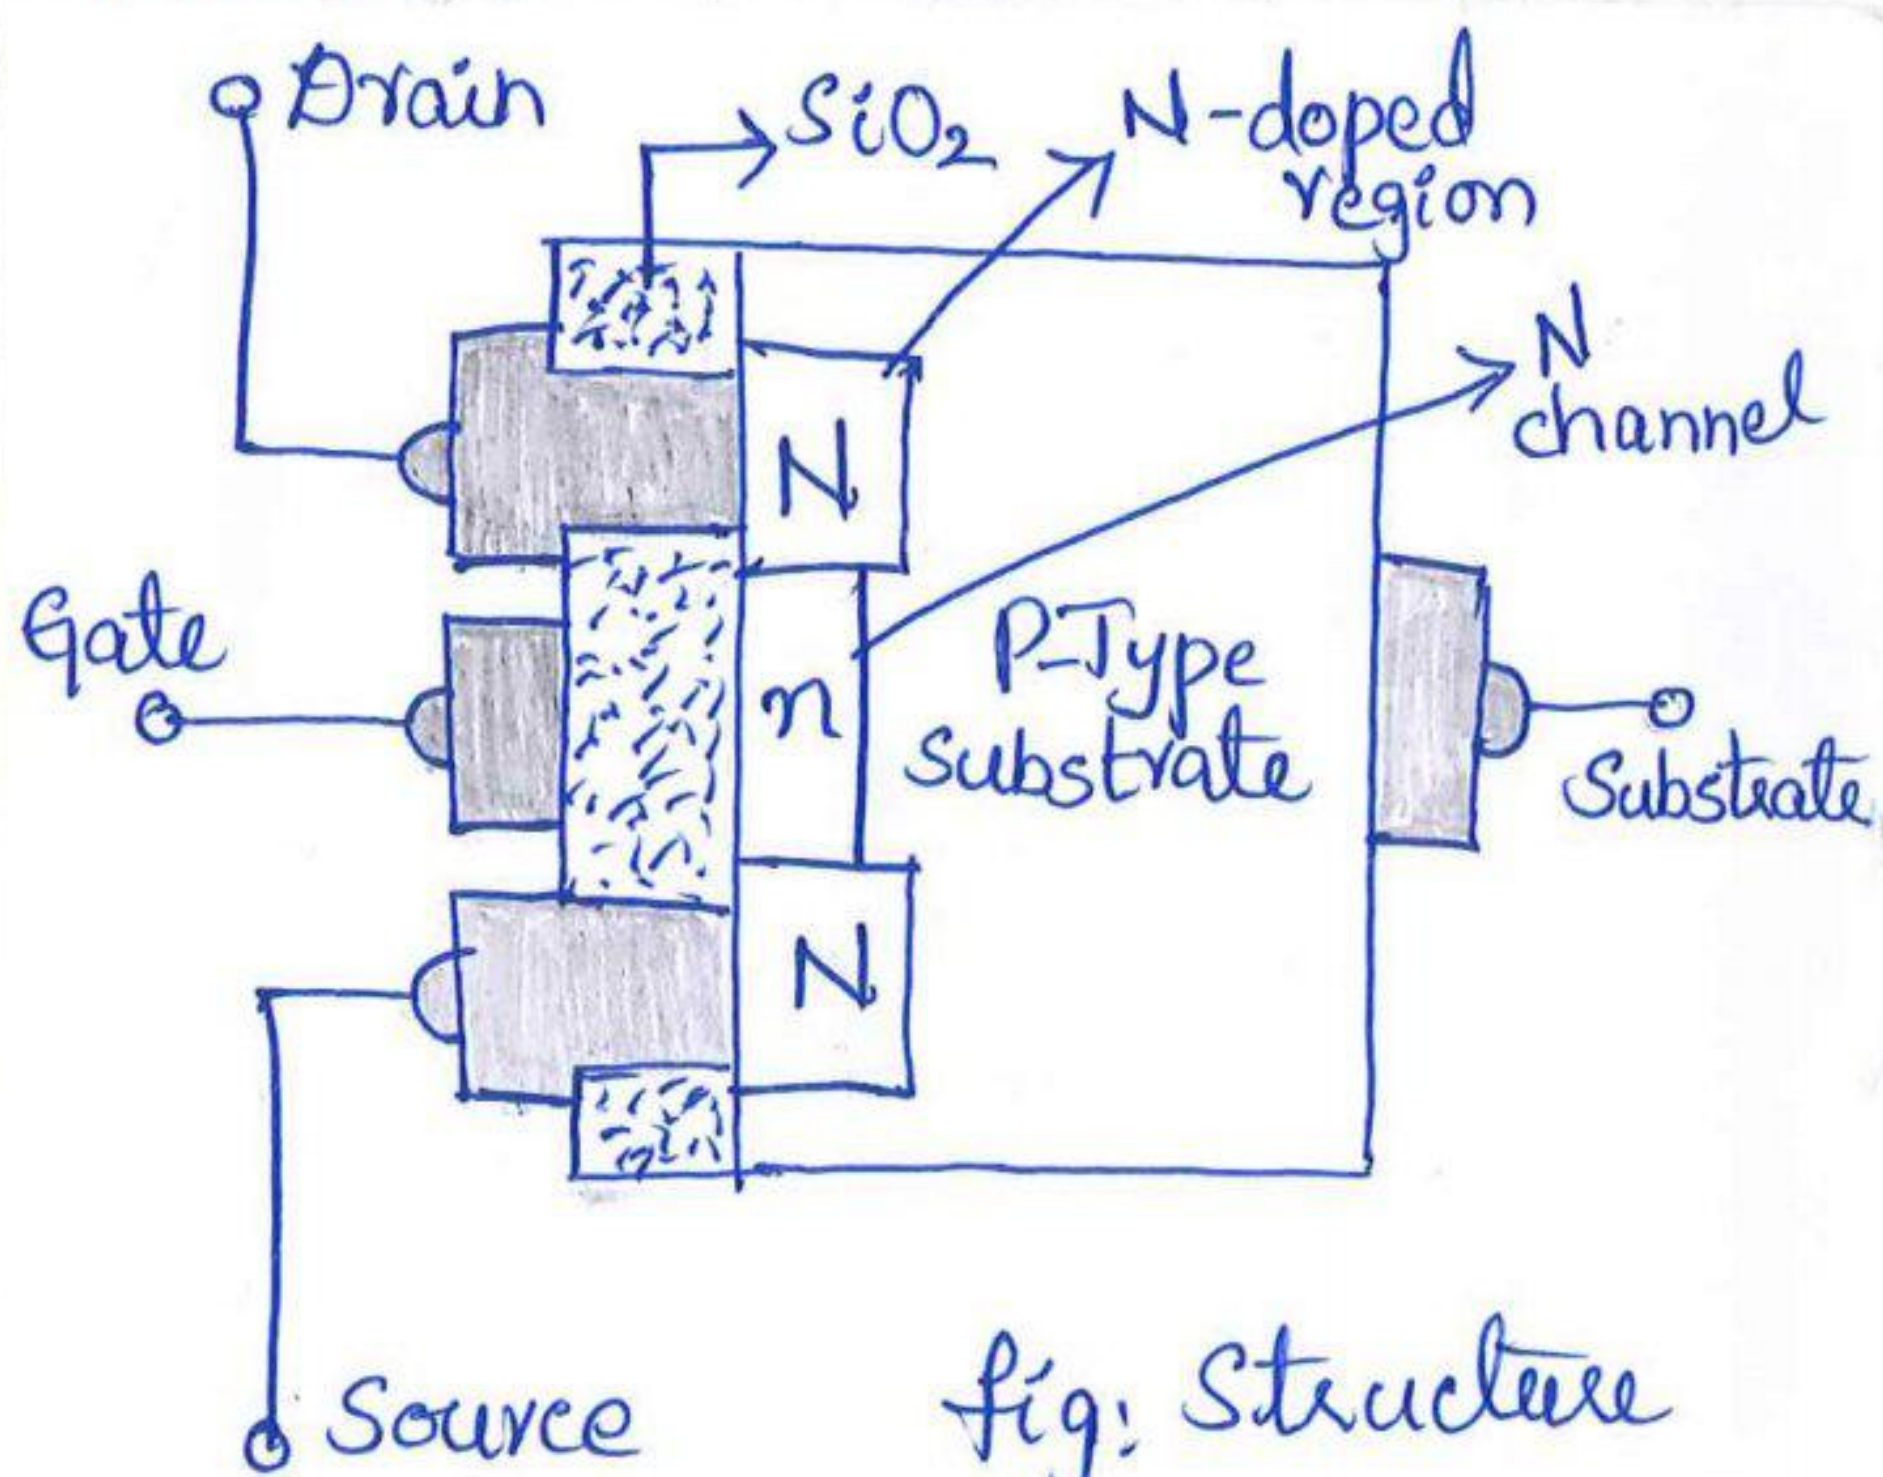 Drain
SiO₂
N-doped
region
N
channel
N
Gate
n
P-Type
Substrate
Substrate
N
Source
fig: Structure